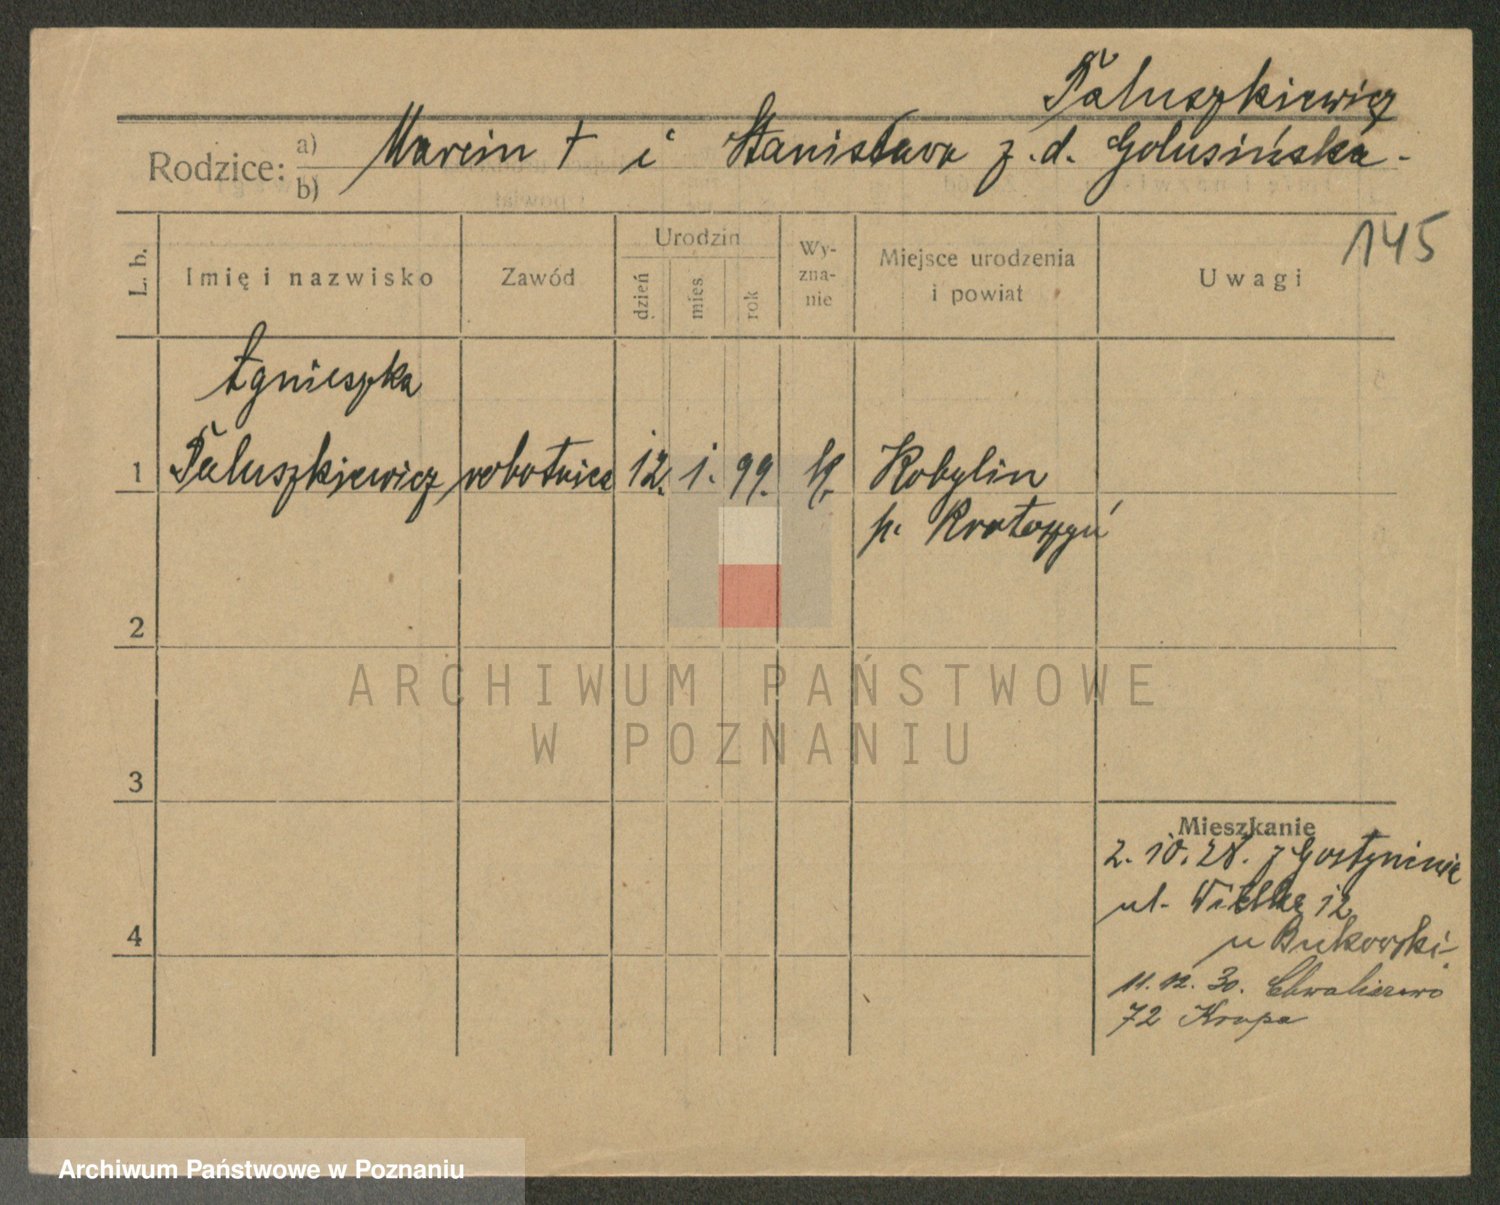 Paluszkiewicz
Rodzice: a) b) Marcin + i Stanisława z.d. Golusińska -
145
L. b.
Imię i nazwisko
Zawód
Urodzin
dzień
mies.
rok
Wy-
zna-
nie
Miejsce urodzenia
i powiat
Uwagi
Agnieszka
1 Paluszkiewicz robotnica 12. 1. 99. Kobylin
p. Krotoszyń
2
3
4
Mieszkanie
2. 10. 28. z Gostyninie
ul. Wielka 12
u Bukowski
11. 12. 30. Chwaliszewo
72 Krupa
ARCHIWUM PAŃSTWOWE
W POZNANIU
Archiwum Państwowe w Poznaniu